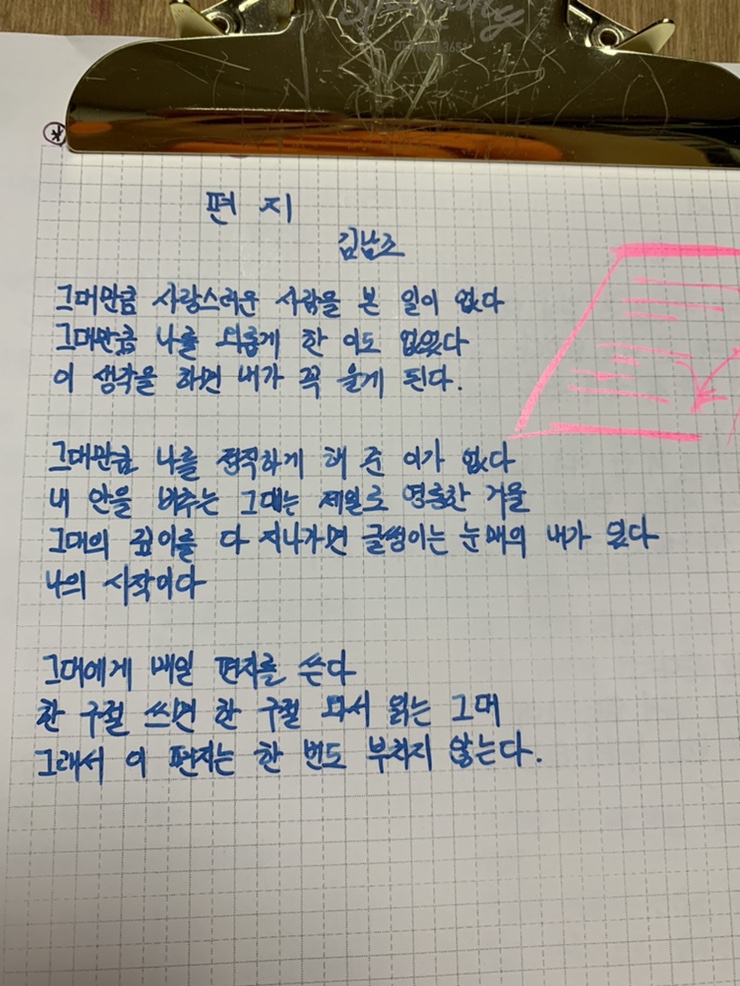 편 지
김남조
그대만큼 사랑스러운 사람을 본 일이 없다
그대만큼 나를 외롭게 한 이도 없었다
이 생각을 하면 내가 꼭 울게 된다.
그대만큼 나를 정직하게 해 준 이가 없다
내 안을 비추는 그대는 제일로 영롱한 거울
그대의 깊이를 다 지나가면 글썽이는 눈매의 내가 있다
나의 시작이다
그대에게 매일 편지를 쓴다
한 구절 쓰면 한 구절 와서 읽는 그대
그래서 이 편지는 한 번도 부치지 않는다.